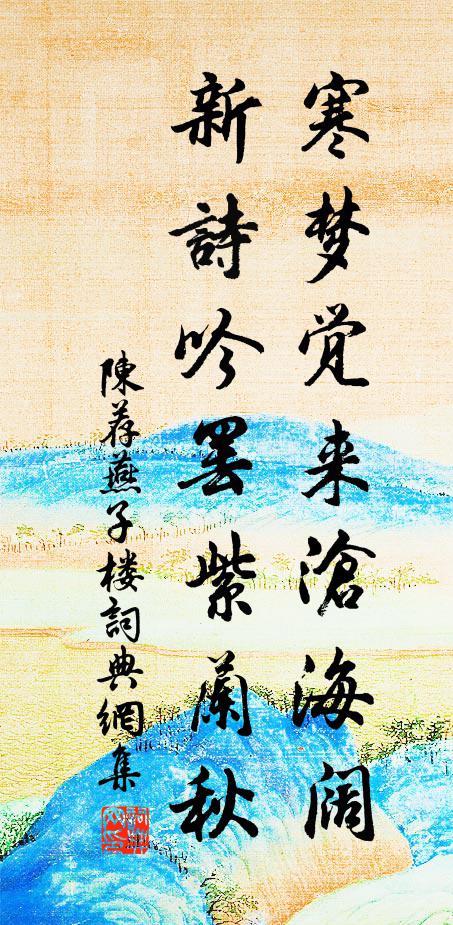 寒梦觉来滄海阔
新詩吟罢紫蘭秋
陳荐燕子楼詞典網集